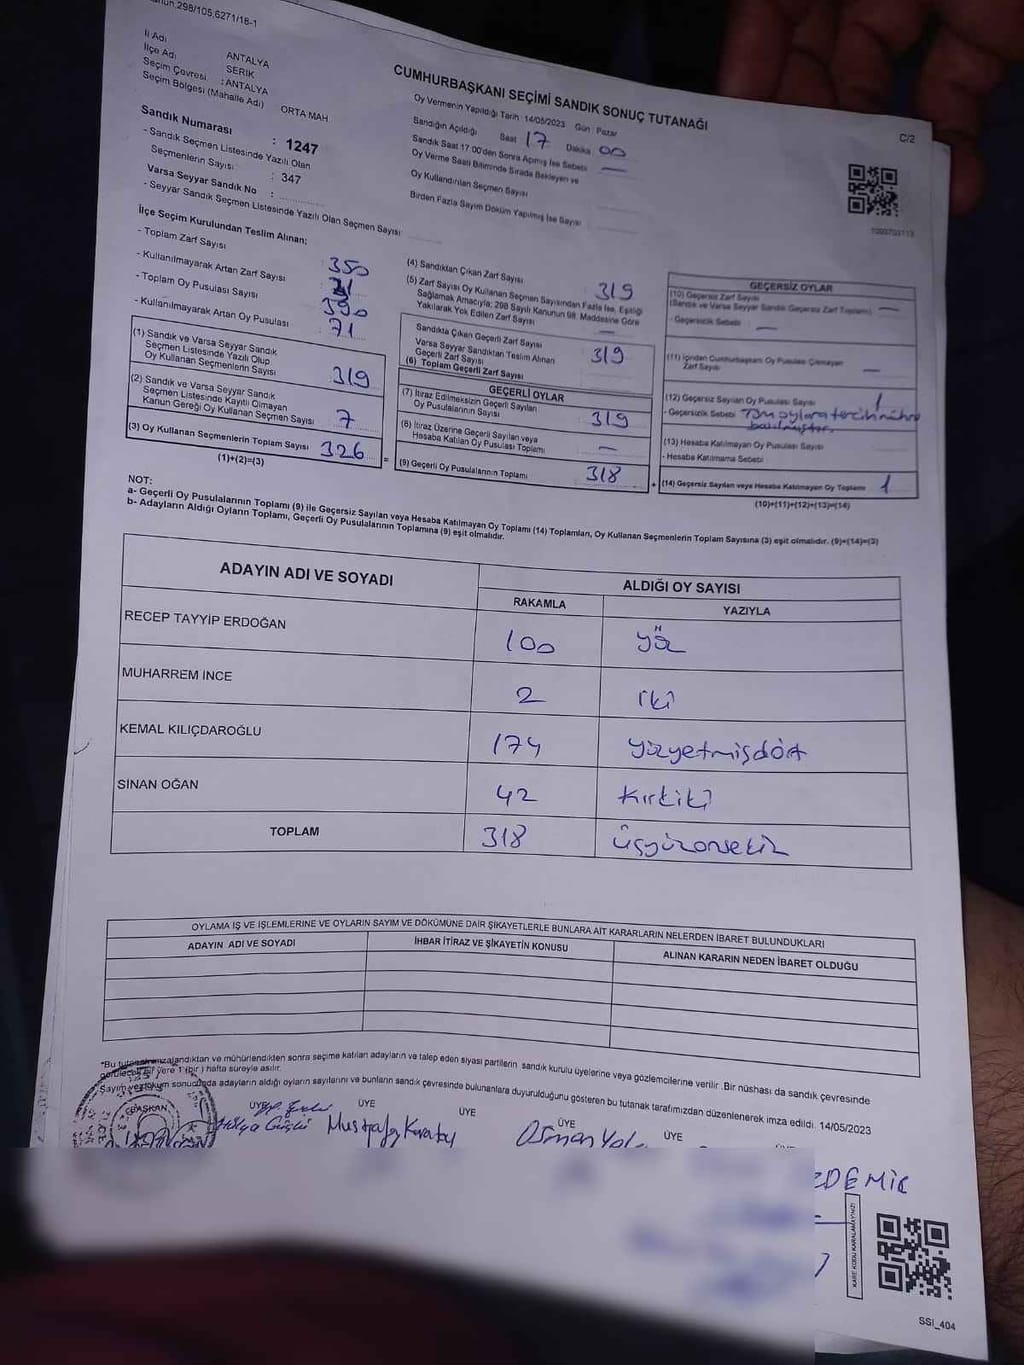 298/105,6271/18-1
İl Adı ANTALYA
İlçe Adı SERİK
Seçim Çevresi : ANTALYA
Seçim Bölgesi (Mahalle Adı) ORTA MAH
Sandık Numarası : 1247
- Sandık Seçmen Listesinde Yazılı Olan
Seçmenlerin Sayısı : 347
Varsa Seyyar Sandık No :
- Seyyar Sandık Seçmen Listesinde Yazılı Olan Seçmen Sayısı
CUMHURBAŞKANI SEÇİMİ SANDIK SONUÇ TUTANAĞI
Oy Vermenin Yapıldığı Tarih : 14/05/2023 Gün : Pazar
Sandığın Açıldığı Saat 17 Dakika 00
Sandık Saat 17:00'den Sonra Açılmış İse Sebebi —
Oy Verme Saati Bitiminde Sırada Bekleyen ve
Oy Kullandırılan Seçmen Sayısı
Birden Fazla Sayım Döküm Yapılmış İse Sayısı
C/2
İlçe Seçim Kurulundan Teslim Alınan:
- Toplam Zarf Sayısı 350
- Kullanılmayarak Artan Zarf Sayısı
- Toplam Oy Pusulası Sayısı 390
- Kullanılmayarak Artan Oy Pusulası 71
(1) Sandık ve Varsa Seyyar Sandık
Seçmen Listesinde Yazılı Olup
Oy Kullanan Seçmenlerin Sayısı 319
(2) Sandık ve Varsa Seyyar Sandık
Seçmen Listesinde Kayıtlı Olmayan
Kanun Gereği Oy Kullanan Seçmen Sayısı 7
(3) Oy Kullanan Seçmenlerin Toplam Sayısı 326
(1)+(2)=(3)
(4) Sandıktan Çıkan Zarf Sayısı 319
(5) Zarf Sayısı Oy Kullanan Seçmen Sayısından Fazla İse, Eşitliği
Sağlamak Amacıyla; 298 Sayılı Kanunun 98. Maddesine Göre
Yakılarak Yok Edilen Zarf Sayısı —
Sandıkta Çıkan Geçerli Zarf Sayısı 319
Varsa Seyyar Sandıktan Teslim Alınan
Geçerli Zarf Sayısı
(6) Toplam Geçerli Zarf Sayısı
GEÇERLİ OYLAR
(7) İtiraz Edilmeksizin Geçerli Sayılan
Oy Pusulalarının Sayısı 319
(8) İtiraz Üzerine Geçerli Sayılan veya
Hesaba Katılan Oy Pusulası Toplamı —
=
(9) Geçerli Oy Pusulalarının Toplamı 318
+
GEÇERSİZ OYLAR
(10) Geçersiz Zarf Sayısı
(Sandık ve Varsa Seyyar Sandık Geçersiz Zarf Toplamı) —
- Geçersizlik Sebebi : —
(11) İçinden Cumhurbaşkanı Oy Pusulası Çıkmayan
Zarf Sayısı —
(12) Geçersiz Sayılan Oy Pusulası Sayısı 1
- Geçersizlik Sebebi Tüm oylara tercih mührü
basılmıştır.
(13) Hesaba Katılmayan Oy Pusulası Sayısı
- Hesaba Katılmama Sebebi
(14) Geçersiz Sayılan veya Hesaba Katılmayan Oy Toplamı 1
(10)+(11)+(12)+(13)=(14)
NOT:
a- Geçerli Oy Pusulalarının Toplamı (9) ile Geçersiz Sayılan veya Hesaba Katılmayan Oy Toplamı (14) Toplamları, Oy Kullanan Seçmenlerin Toplam Sayısına (3) eşit olmalıdır. (9)+(14)=(3)
b- Adayların Aldığı Oyların Toplamı, Geçerli Oy Pusulalarının Toplamına (9) eşit olmalıdır.
ADAYIN ADI VE SOYADI ALDIĞI OY SAYISI
RAKAMLA YAZIYLA
RECEP TAYYİP ERDOĞAN 100 yüz
MUHARREM İNCE 2 iki
KEMAL KILIÇDAROĞLU 174 yüzyetmişdört
SİNAN OĞAN 42 kırkiki
TOPLAM 318 üçyüzonsekiz
OYLAMA İŞ VE İŞLEMLERİNE VE OYLARIN SAYIM VE DÖKÜMÜNE DAİR ŞİKAYETLERLE BUNLARA AİT KARARLARIN NELERDEN İBARET BULUNDUKLARI
ADAYIN ADI VE SOYADI İHBAR İTİRAZ VE ŞİKAYETİN KONUSU ALINAN KARARIN NEDEN İBARET OLDUĞU
*Bu tutanak imzalandıktan ve mühürlendikten sonra seçime katılan adayların ve talep eden siyasi partilerin sandık kurulu üyelerine veya gözlemcilerine verilir. Bir nüshası da sandık çevresinde
görülecek bir yere 1 (bir) hafta süreyle asılır.
Sayım ve döküm sonucunda adayların aldığı oyların sayılarını ve bunların sandık çevresinde bulunanlara duyurulduğunu gösteren bu tutanak tarafımızdan düzenlenerek imza edildi. 14/05/2023
BAŞKAN ÜYE ÜYE ÜYE ÜYE ÜYE
Hülya Güçlü Mustafa Karatay Osman
KARE KODU KARALAMAYINIZ!
SSİ_404